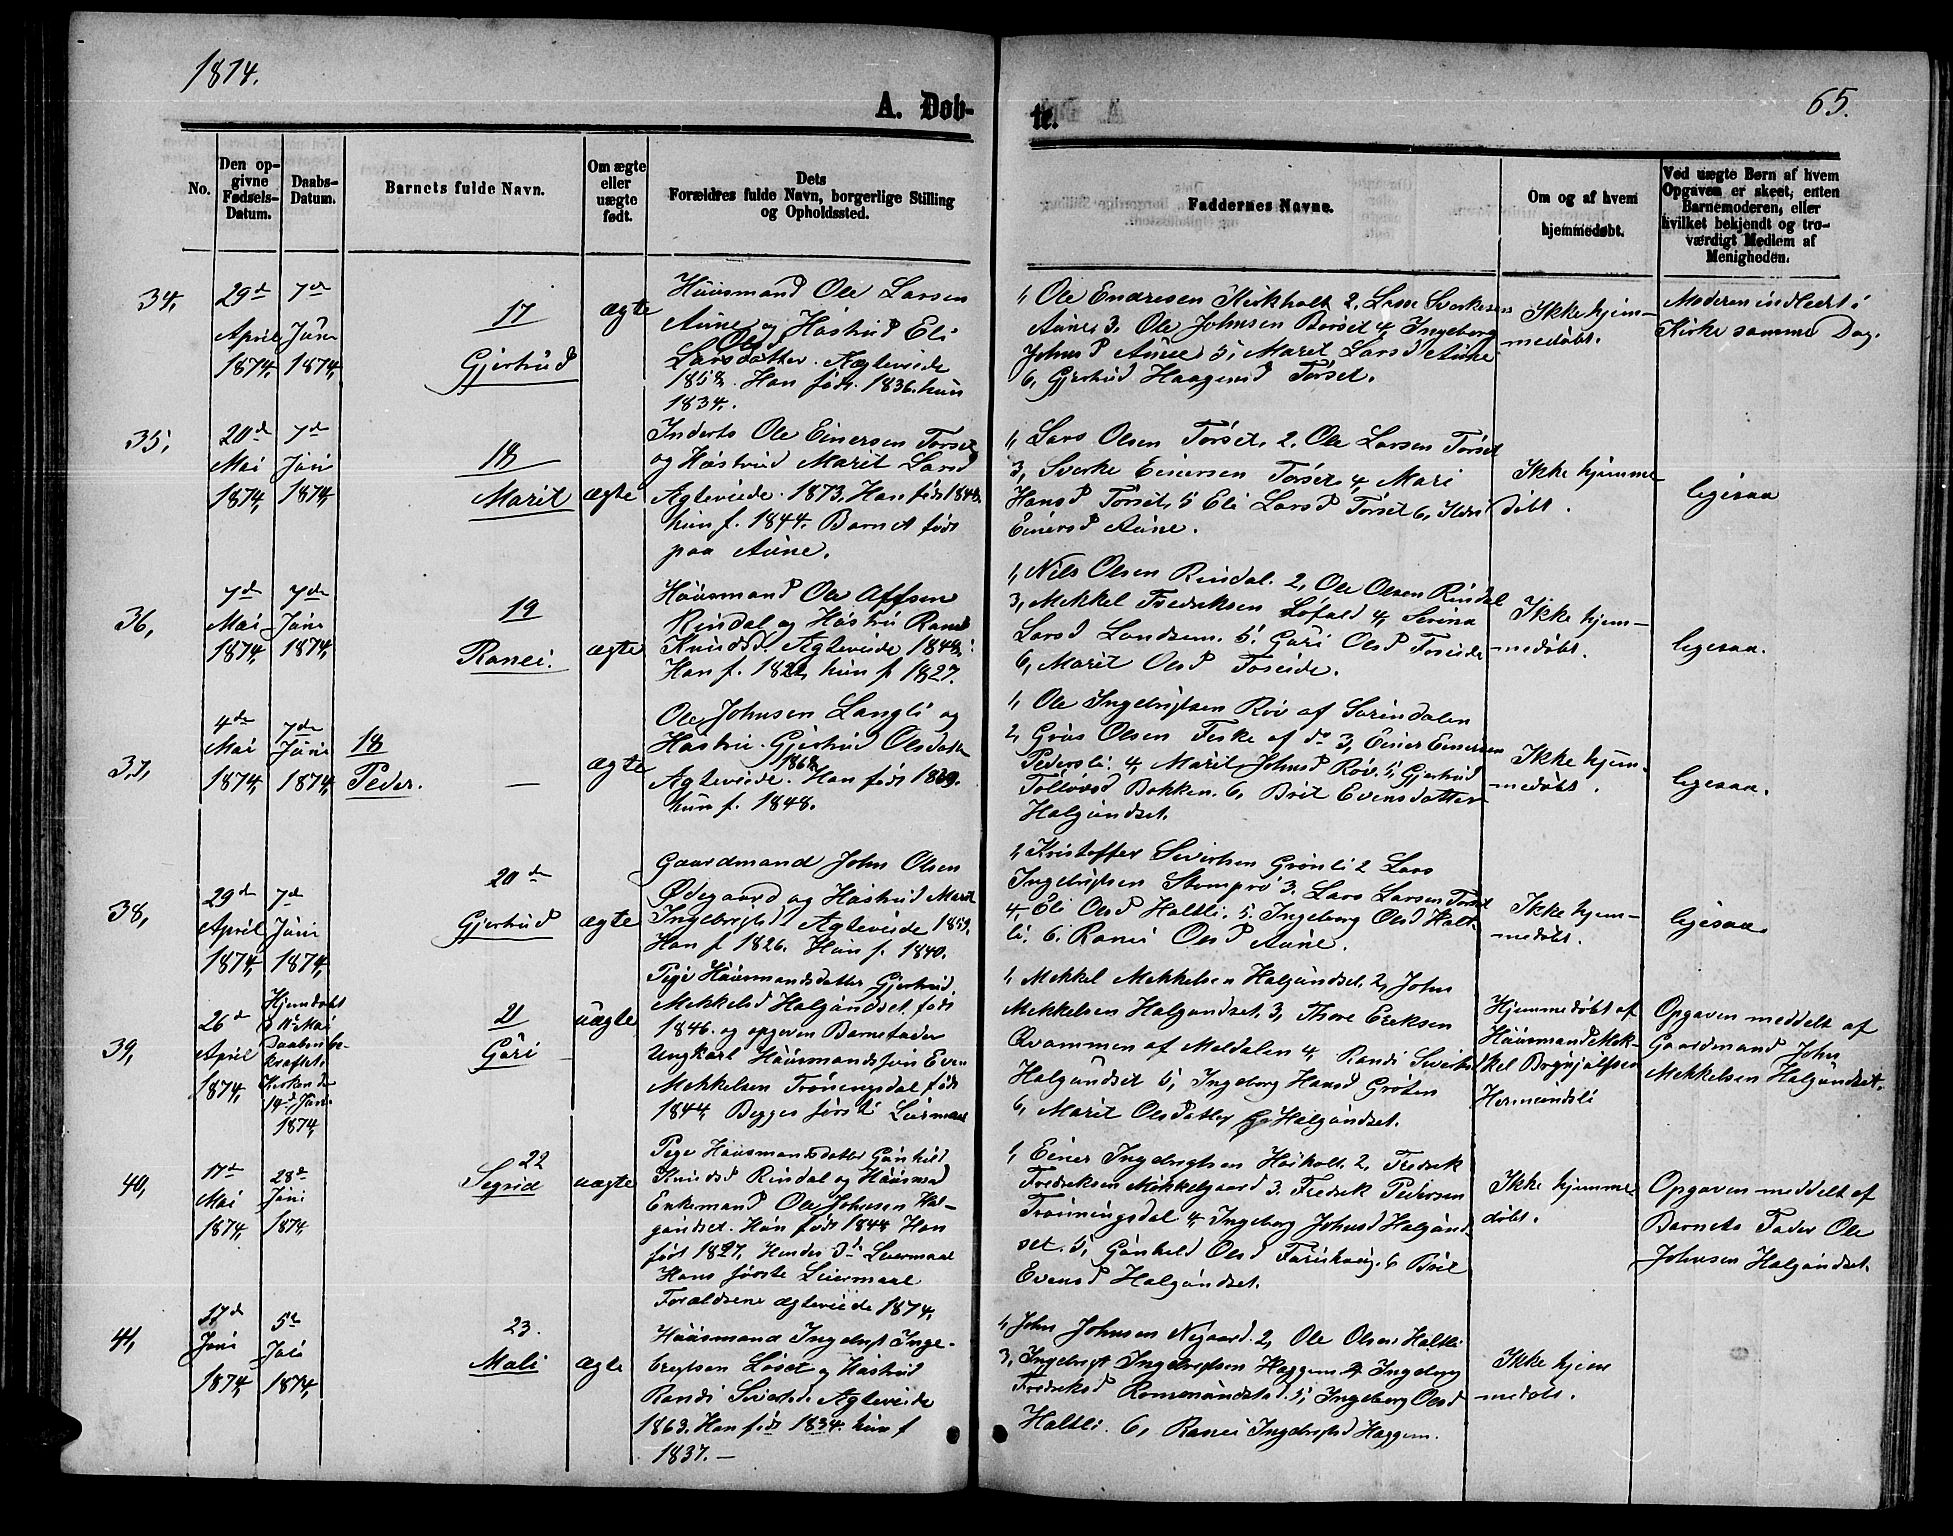 1874.
65.
A. Døb-
te.
No.
Den op-
givne
Fødsels-
Datum.
Daabs-
Datum.
Barnets fulde Navn.
Om ægte
eller
uægte
født.
Dets
Forældres fulde Navn, borgerlige Stilling
og Opholdssted.
Faddernes Navne.
Om og af hvem
hjemmedøbt.
Ved uægte Børn af hvem
Opgaven er skeet, enten
Barnemoderen, eller
hvilket bekjendt og tro-
værdigt Medlem af
Menigheden.
34,
29de
April
1874,
7de
Juni
1874,
17
Gjertrud
ægte
Huusmand Ole Larsen
Aune og Hustrud Eli
Olsd
Larsdatter. Ægteviede
1858. Han født 1836. hun
1834.
1, Ole Endresen Kirkholt 2, Lars Sverkesen
Aune 3. Ole Johnsen Børset 4, Ingeborg
Johnsd Aune 5, Marit Larsd Aune
6, Gjertrud Haagensd Torset.
Ikke hjem-
medøbt.
Moderen indledet i
Kirke samme Dag.
35,
20de
Mai
1874,
7de
Juni
1874,
18
Marit
ægte
Inderts Ole Einersen Torset
og Hustrud Marit Larsd
Ægteviede 1873. Han født 1848
hun f. 1844. Barnet født
paa Aune.
1, Lars Olsen Torset, 2, Ole Larsen Torset
3, Sverke Einersen Torset 4, Mari
Hansd Torset, 5 Eli Larsd Torset 6, Ildri
Einersd Aune.
Ikke hjemme
døbt.
ligesaa
36,
7de
Mai
1874,
7de
Juni
1874,
19
Ranei.
ægte
Huusmand Ole Olssen
Rindal og Hustru Ranei
Knudsd. Ægteviede 1848.
Han f. 1822, hun f 1827.
1, Nils Olsen Rindal. 2, Ole Olsen Rindal
3, Mekkel Fredriksen Løfald 4, Serina
Larsd Landsem. 5, Guri Olsd Toseide
6, Marit Olsd Toseide.
Ikke hjem-
medøbt.
ligesaa.
37,
4de
Mai
1874,
7de
Juni
1874,
18
Peder.
—
ægte
Ole Johnsen Langli og
Hustru Gjertrud Olsdatter
1868
Ægteviede. Han født 1839.
hun f. 1848.
1, Ole Ingebrigtsen Røv af Surendalen
2, Gruis Olsen Feske af do 3, Einer Einersen
Pedersli. 4, Marit Johnsd Røv. 5, Gjertrud
Tollovsd Bakken. 6, Brit Evensdatter
Halgundset.
Ikke hjem-
medøbt.
ligesaa.
38,
29de
April
1874,
7de
Juni
1874,
20de
Gjertrud
ægte
Gaardmand John Olsen
Ødegaard og Hustrud Marit
Ingebrigtsd Ægteviede 1859.
Han f 1826. Hun f. 1840.
1, Kristoffer Sivertsen Grønli 2 Lars
Ingebrigtsen Stomprø 3. Lars Larsen Torset
4, Eli Olsd Haltli. 5. Ingeborg Olsd Halt-
li. 6. Ranei Olsd Aune.
Ikke hjem-
medøbt.
ligesaa
39,
26de
April
1874,
Hjemdøbt
Mai
Daaben be-
kræftet i
Kirken den
14de Juni
1874,
21
Guri
uægte
Pige Huusmandsdatter Gjertrud
Mekkelsd Halgundset født
1846. og opgiven Barnefader
Ungkarl Huusmandssøn Even
Mekkelsen Trøningsdal født
1844, Begges første Leiermaal
1, Mekkel Mekkelsen Halgundset, 2, John
Mekkelsen Halgundset, 3, Thore Eriksen
Qvammen af Meldalen 4, Randi Sivertsd
Halgundset 5, Ingeborg Hansd Groten
6, Marit Olsdatter Halgundset.
Hjemmedøbt af
Huusmand Mek-
kel Brynjulfsen
Hermandsli
Opgaven meddelt af
Gaardmand John
Mekkelsen Halgundset.
40,
17de
Mai
1874,
28de
Juni
1874,
22
Segrid
uægte
Pige Huusmandsdatter Gunhild
Knudsd Rindal og Huusmd
Enkemand Ole Johnsen Hal-
gundset. Hun født 1844 Han
født 1827, Hendes 3de Leiermaal
Hans første Leiermaal
Forældrene ægteviede 1874,
1, Einer Ingebrigtsen Høiholt 2, Fredrik
Fredriksen Mikkelgaard 3. Fredrik Pedersen
Trøunningsdal 4, Ingeborg Johnsd Halgund
set. 5, Gunhild Olsd Fariskaug. 6 Brit
Evensd Halgundset.
Ikke hjemme-
døbt.
Opgaven meddelt af
Barnets Fader Ole
Johnsen Halgundset.
41,
17de
Juni
1874,
5te
Juli
1874,
23.
Mali
ægte
Huusmand Ingebrigt Inge-
brigtsen Løset og Hustrud
Randi Sivertsd. Ægteviede
1863. Han født 1834. hun f
1837. —
1, John Johnsen Nygaard. 2, Ole Olsen Haltli
3, Ingebrigt Ingebrigtsen Haggem 4, Ingeborg
Fredriksd Romundstad. 5, Ingeborg Olsd
Haltli. 6, Ranei Ingebrigtsd Haggem.
Ikke hjem
medøbt.